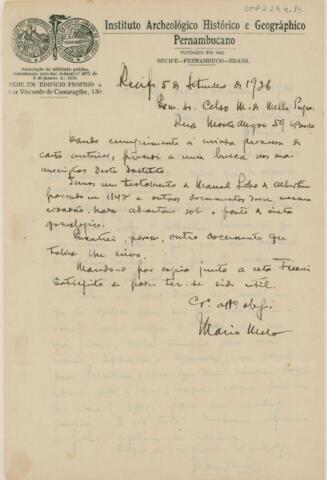 CMP 2.2.9.4.83
Instituto Archeológico Histórico e Geográphico
Pernambucano
FUNDADO EM 1862
RECIFE—PERNAMBUCO—BRASIL
Associação de utilidade publica,
SÉDE EM EDIFICIO PROPRIO á
rua Visconde de Camaragibe, 130
Recife, 5 de Setembro de 1936
Exmo. sr. Celso M. de Mello Pupo.
Rua Monte Alegre 59, S. Paulo
Dando cumprimento á minha promessa de
carta anterior, procedi a uma busca nos ma-
nuscriptos deste Instituto.
Temos um testamento de Manuel Lobo de
passado em 1848 e outros documentos desse mesmo
cidadão. Nada adeantam sob o ponto de vista
genealogico.
Encontrei, porém, outro documento que
talvez lhe sirva.
Mando-o por copia junto a esta. Ficarei
satisfeito se poder ter-lhe sido util.
Cr.º att.º obg.º
Mario Melo